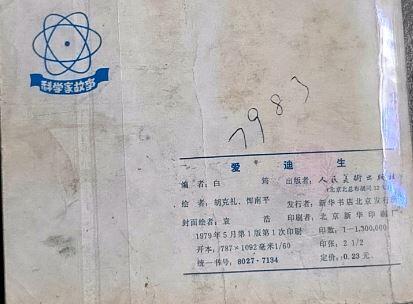 科学家故事
1983
爱迪生
编 者：白 筠 出版者：人民美术出版社
（北京北总布胡同32号）
绘 者：胡克礼、恽南平 发行者：新华书店北京发行所
封面绘者：袁 浩 印刷者：北京新华印刷厂
1979年5月第1版第1次印刷 印数：1—1,300,000
开本：787×1092毫米1/60 印张：2 1/2
统一书号：8027·7134 定价：0.23元